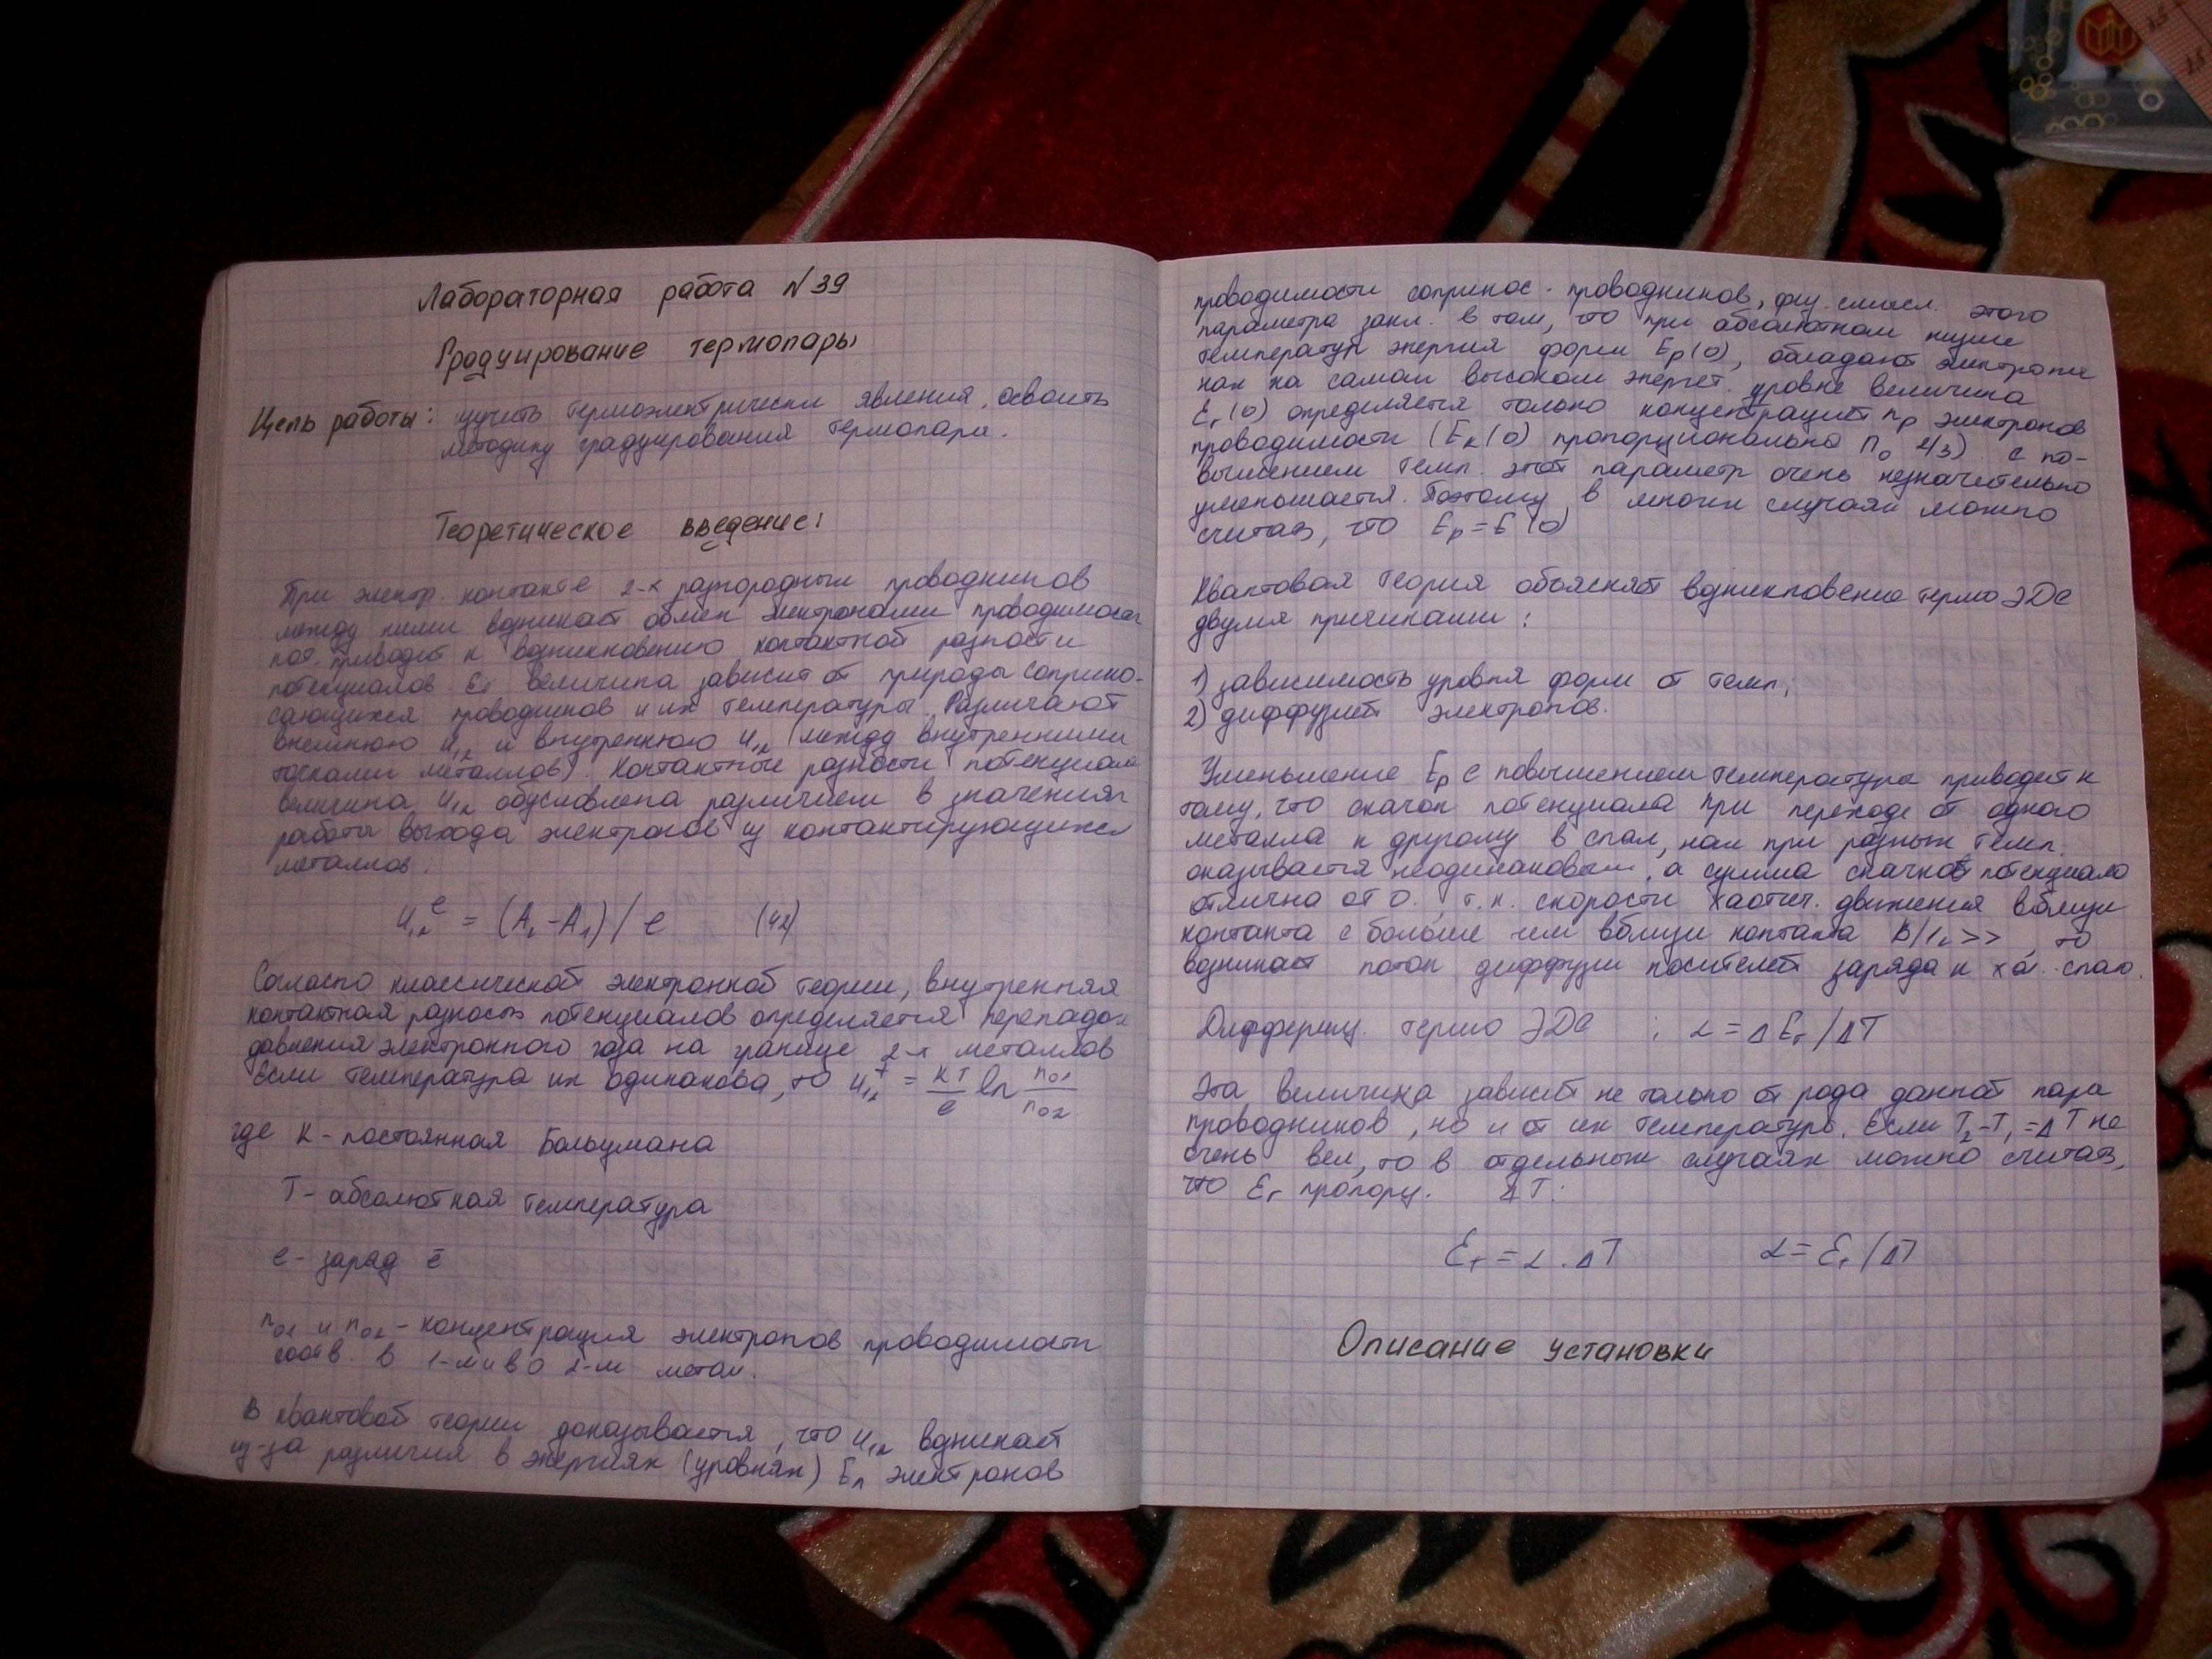 Лабораторная работа №39
Градуирование термопары
Цель работы: изучить термоэлектрически явления, освоить
методику градуирования термопары.
Теоретическое введение:
При электр. контакте 2-х разнородных проводников
между ними вдзникает обмен электронами проводимости
кот. приводит к вдзникновению контактной разности
потенциалов Её величина зависит от природы соприко-
сающихся проводников и их температуры. Различают
внешнюю U₁₂ и внутреннюю U₁₂ (между внутренними
точками металлов). Контактные разности потенциала
величина U₁₂ обусловлена различием в значениях
работы выхода электронов из контактирующихся
металлов:
U₁₂ᵉ = (A₂-A₁)/e (42)
Согласно классической электронной теории, внутренняя
контактная разность потенциалов определяется перепадом
давления электронного газа на границе 2-х металлов
Если температура их одинакова, то U₁₂ = KT/e ln n₀₁/n₀₂
где K - постоянная Больцмана
T - абсолютная температура
e - заряд ē
n₀₁ и n₀₂ - концентрация электронов проводимости
соотв. в 1-м и во 2-м метал.
В квантовой теории доказывается, что U₁₂ вдзникает
из-за различия в энергиях (уровнях) Eл электронов
проводимости соприкос. проводников, физ. смысл. этого
параметра закл. в том, что при абсолютном нуле
температур энергия ферми Eр(0), обладают электроны
как на самом высоком энергет. уровне величина
Eг(0) определяется только концентрацией nр электронов
проводимости (Eк(0) пропорциональна n₀ 2/3). с по-
вышением темп. этот параметр очень незначительно
уменьшается. Поэтому в многих случаях можно
считать, что Eр = E(0)
Квантовая теория объясняет вдзникновение термо ЭДС
двумя причинами:
1) зависимость уровня ферми от темп;
2) диффузией электронов.
Уменьшение Eр с повышением температуры приводит к
тому, что скачок потенциала при переходе от одного
металла к другому в спал, как при разных темп.
оказывается неодинаковым, а сумма скачков потенциала
отлична от 0. т.к. скорости хаотич. движения вблизи
контакта с больше чем вблизи контакта B/T₂>> , то
вдзникает поток диффузии носителей заряда к хол. спаю.
Дифференц. термо ЭДС : α = ΔEт/ΔT
Эта величина зависит не только от рода данной пары
проводников, но и от их температуры. Если T₂-T₁=ΔT не
очень вел, то в отдельных случаях можно считать,
что Eт пропорц. ΔT:
Ɛт = α·ΔT α = Ɛт/ΔT
Описание установки